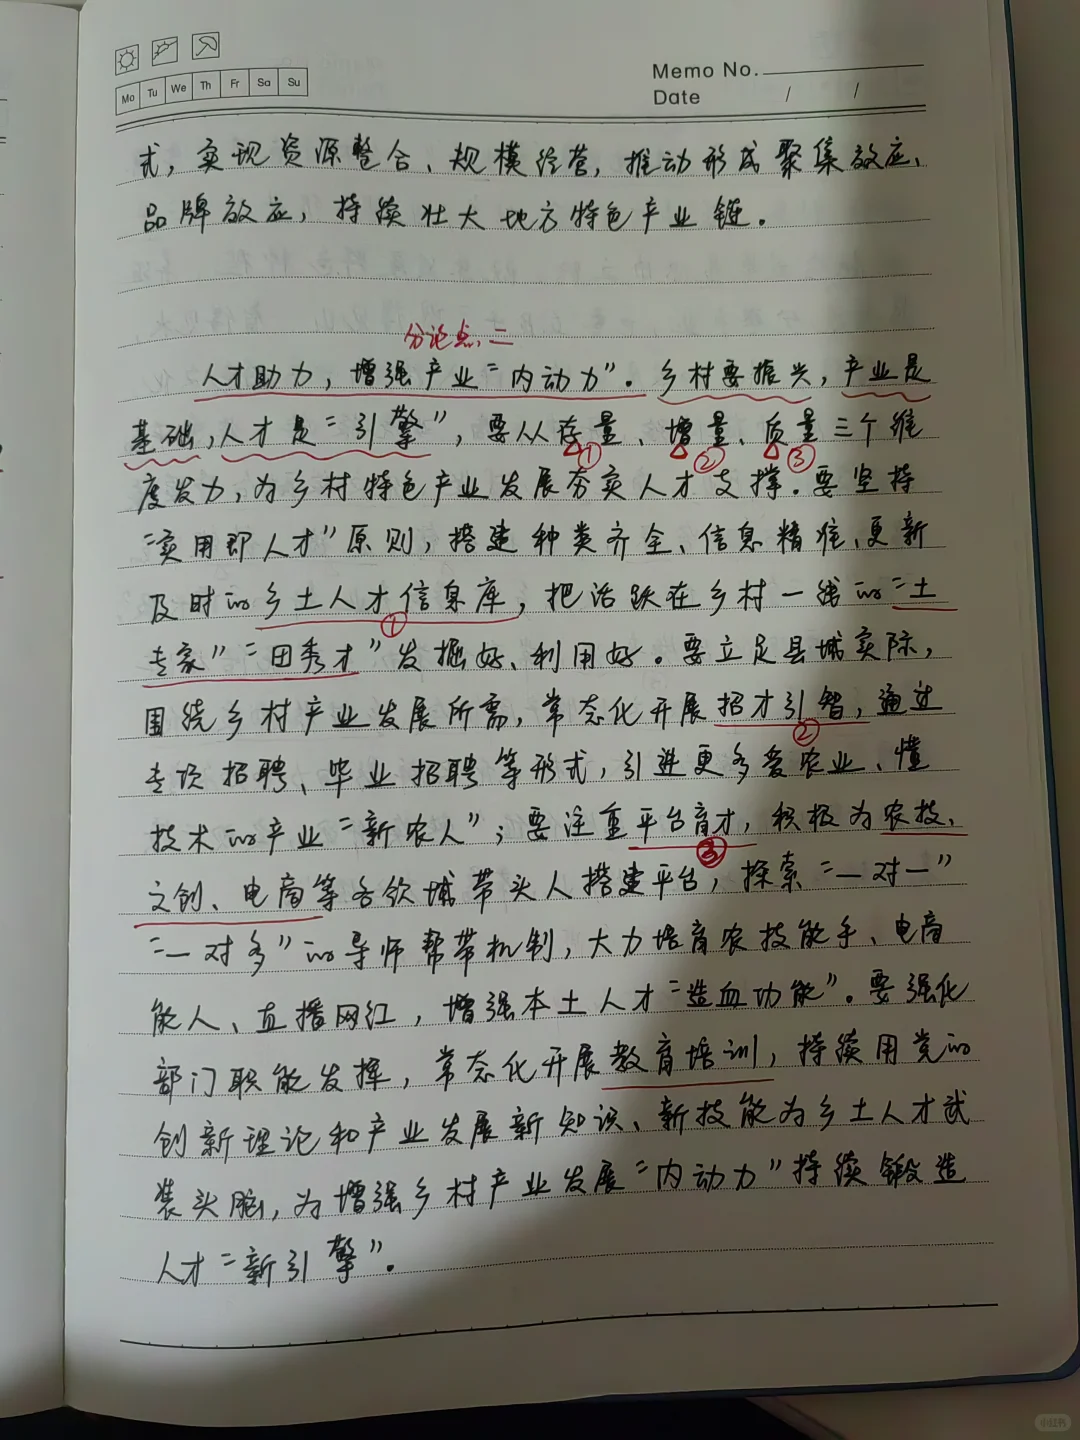 Mo Tu We Th Fr Sa Su
Memo No.
Date / /
式，实现资源整合、规模经营，推动形成聚集效应、
品牌效应，持续壮大地方特色产业链。
分论点二
人才助力，增强产业“内动力”。乡村要振兴，产业是
基础，人才是“引擎”，要从存量、增量、质量三个维
① ② ③
度发力，为乡村特色产业发展夯实人才支撑。要坚持
“实用即人才”原则，搭建种类齐全、信息精准、更新
及时的乡土人才信息库，把活跃在乡村一线的“土
①
专家”“田秀才”发掘好、利用好。要立足县域实际，
围绕乡村产业发展所需，常态化开展招才引智，通过
②
专项招聘、毕业招聘等形式，引进更多爱农业、懂
技术的产业“新农人”；要注重平台育才，积极为农技、
③
文创、电商等各领域带头人搭建平台，探索“一对一”
“一对多”的导师帮带机制，大力培育农技能手、电商
能人、直播网红，增强本土人才“造血功能”。要强化
部门职能发挥，常态化开展教育培训，持续用党的
创新理论和产业发展新知识、新技能为乡土人才武
装头脑，为增强乡村产业发展“内动力”持续锻造
人才“新引擎”。
小红书